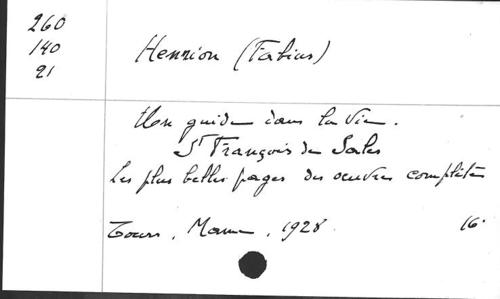 260
140
21
Henrion (Fabius)
Un guide dans la vie.
St François de Sales
Les plus belles pages des oeuvres complètes
Tours, Mame, 1928 16°